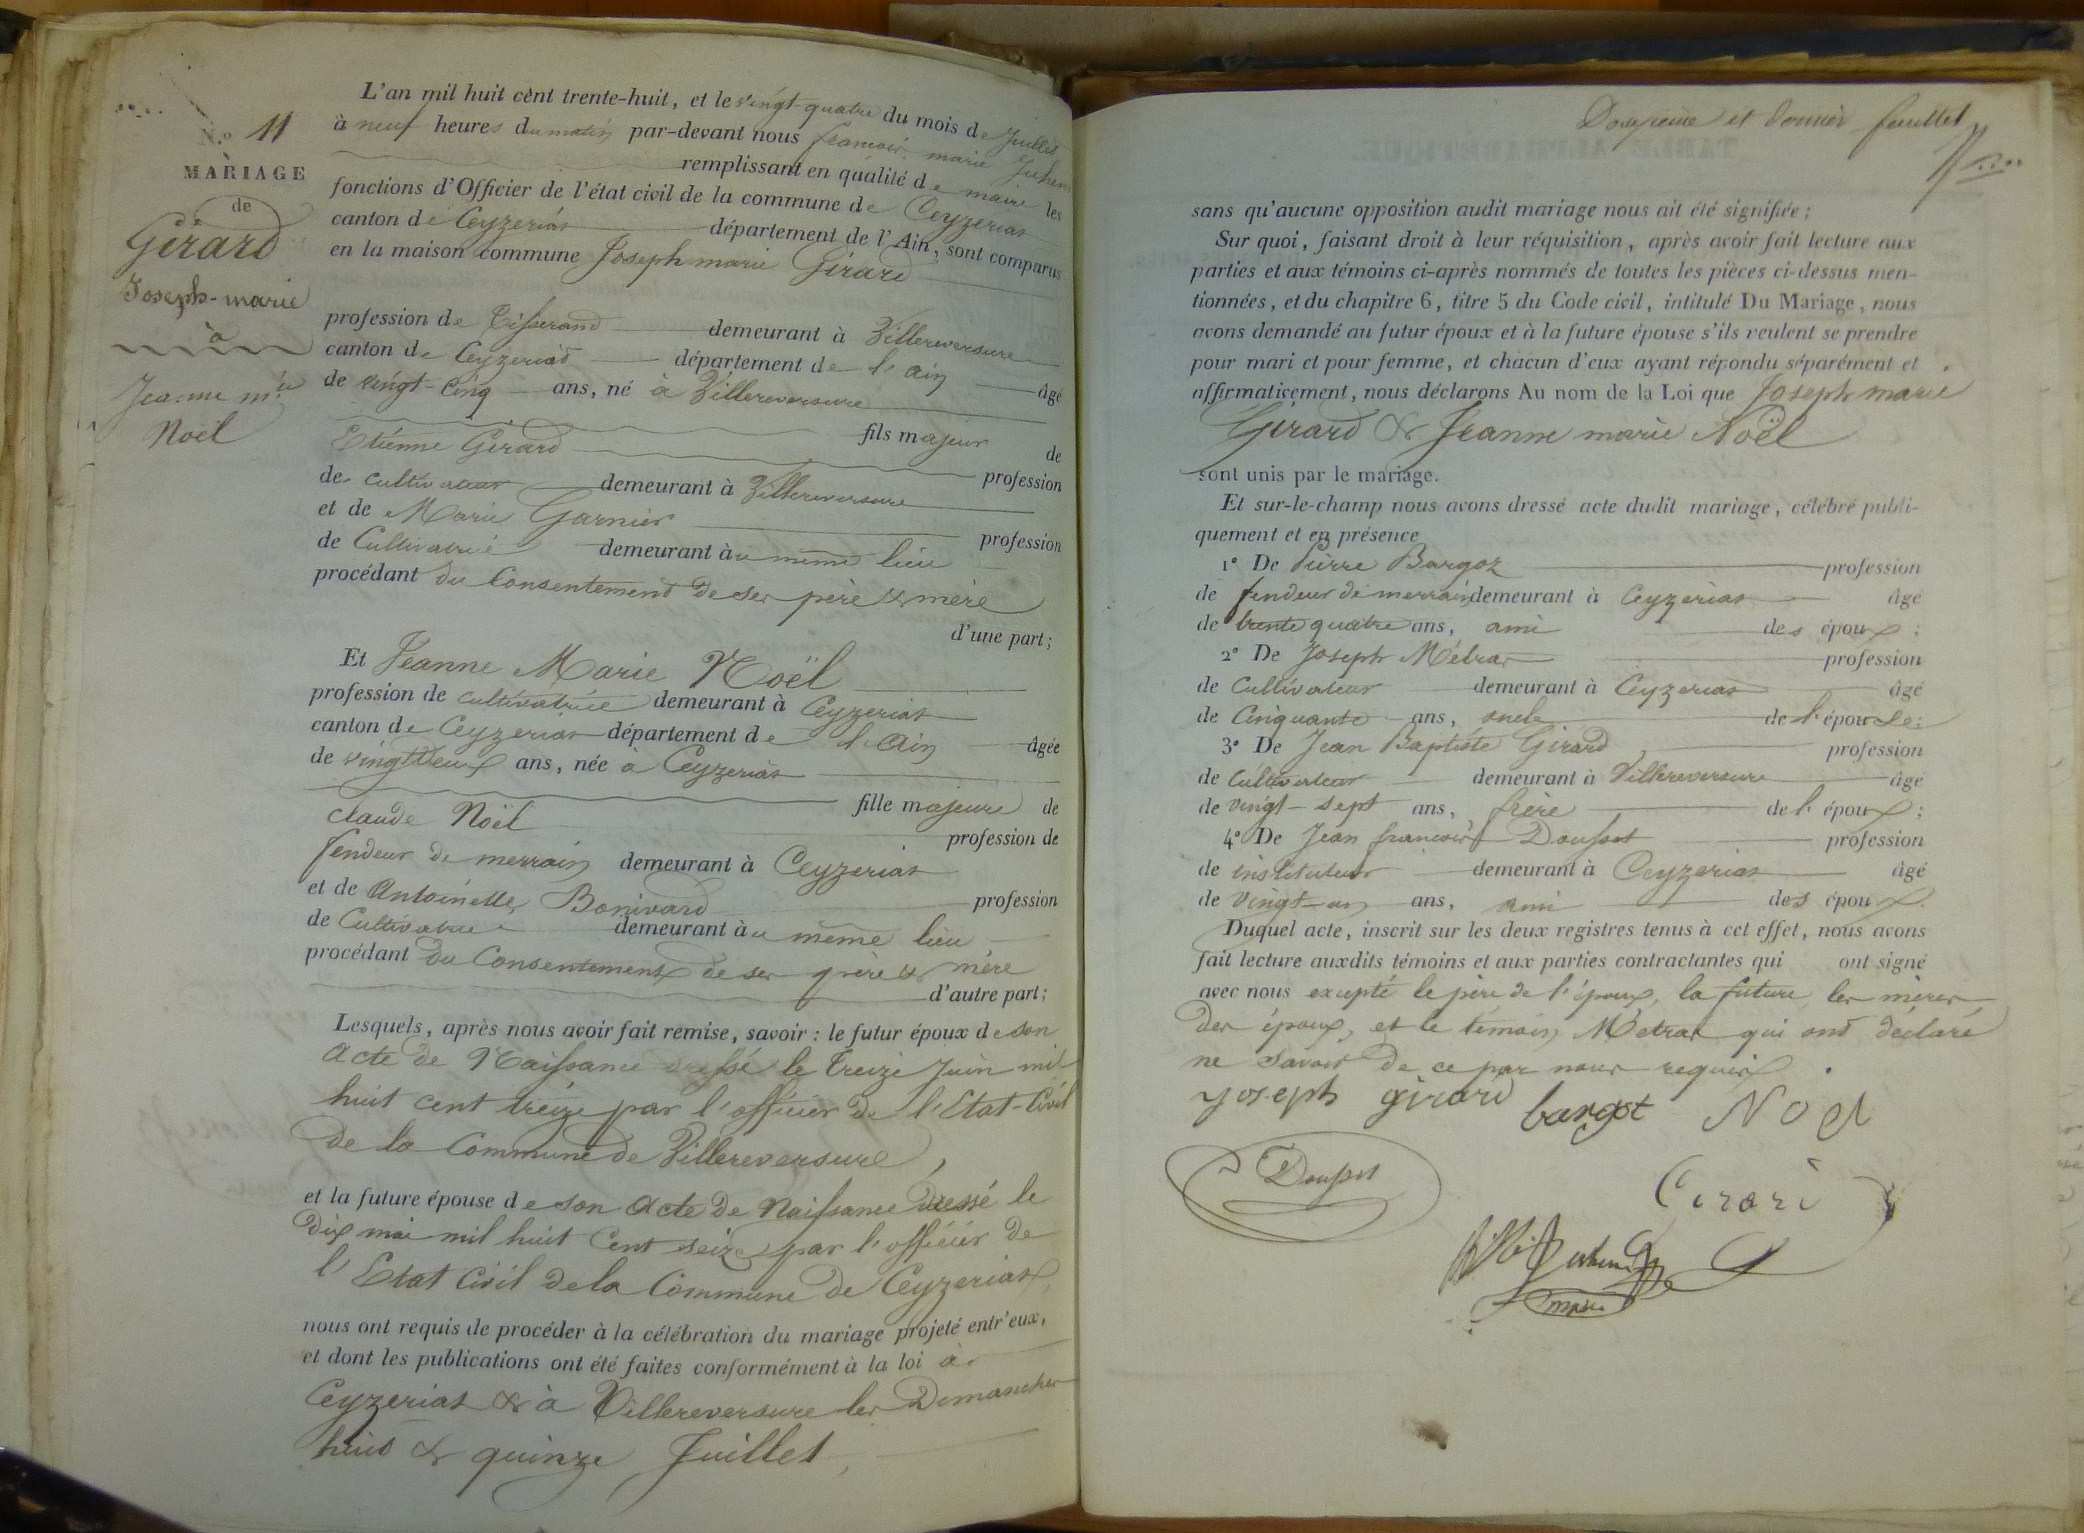 N.º 11
MARIAGE
de
Girard
Joseph-marie
à
Jeanne m.ie
Noël
L'an mil huit cent trente-huit, et le vingt-quatre du mois de Juillet
à neuf heures du matin par-devant nous françois marie Juhem
remplissant en qualité de maire les
fonctions d'Officier de l'état civil de la commune de Ceyzerias
canton de Ceyzerias département de l'Ain, sont comparus
en la maison commune Joseph marie Girard
profession de Tisserand demeurant à Villereversure
canton de Ceyzerias département de l'ain âgé
de vingt-cinq ans, né à Villereversure
fils majeur de
Etienne Girard profession
de cultivateur demeurant à Villereversure
et de Marie Garnier profession
de Cultivatrice demeurant au même lieu
procédant du Consentement de ses père & mère
d'une part;
Et Jeanne Marie Noël
profession de cultivatrice demeurant à Ceyzerias
canton de Ceyzerias département de l'Ain âgée
de vingt deux ans, née à Ceyzerias
fille majeure de
claude Noël profession de
fendeur de merrain demeurant à Ceyzerias
et de Antoinette Bonivard profession
de Cultivatrice demeurant au même lieu
procédant du Consentement de ses père & mère
d'autre part;
Lesquels, après nous avoir fait remise, savoir : le futur époux de son
acte de Naissance dressé le treize Juin mil
huit cent treize par l'officier de l'Etat-Civil
de la Commune de Villereversure,
et la future épouse de son acte de Naissance dressé le
dix mai mil huit Cent seize par l'officier de
l'Etat Civil de la Commune de Ceyzerias,
nous ont requis de procéder à la célébration du mariage projeté entr'eux,
et dont les publications ont été faites conformément à la loi à
Ceyzerias & à Villereversure les Dimanches
huit & quinze Juillet,
Douzieme et dernier feuillet
sans qu'aucune opposition audit mariage nous ait été signifiée;
Sur quoi, faisant droit à leur réquisition, après avoir fait lecture aux
parties et aux témoins ci-après nommés de toutes les pièces ci-dessus men-
tionnées, et du chapitre 6, titre 5 du Code civil, intitulé Du Mariage, nous
avons demandé au futur époux et à la future épouse s'ils veulent se prendre
pour mari et pour femme, et chacun d'eux ayant répondu séparément et
affirmativement, nous déclarons Au nom de la Loi que Joseph marie
Girard & Jeanne marie Noël
sont unis par le mariage.
Et sur-le-champ nous avons dressé acte dudit mariage, célébré publi-
quement et en présence
1º De Pierre Bargoz profession
de fendeur de merrain demeurant à Ceyzerias âgé
de trente quatre ans, ami des époux;
2º De Joseph Métras profession
de Cultivateur demeurant à Ceyzerias âgé
de Cinquante ans, oncle de l'épouse;
3º De Jean Baptiste Girard profession
de Cultivateur demeurant à Villereversure âgé
de vingt-sept ans, frère de l'époux;
4º De Jean françois Doussot profession
de instituteur demeurant à Ceyzerias âgé
de vingt-un ans, ami des époux.
Duquel acte, inscrit sur les deux registres tenus à cet effet, nous avons
fait lecture auxdits témoins et aux parties contractantes qui ont signé
avec nous excepté le père de l'époux, la future, les mères
des époux, et le témoin Métras qui ont déclaré
ne savoir de ce par nous requis.
Joseph girard bargot Noel
Doussot
Girard
maire